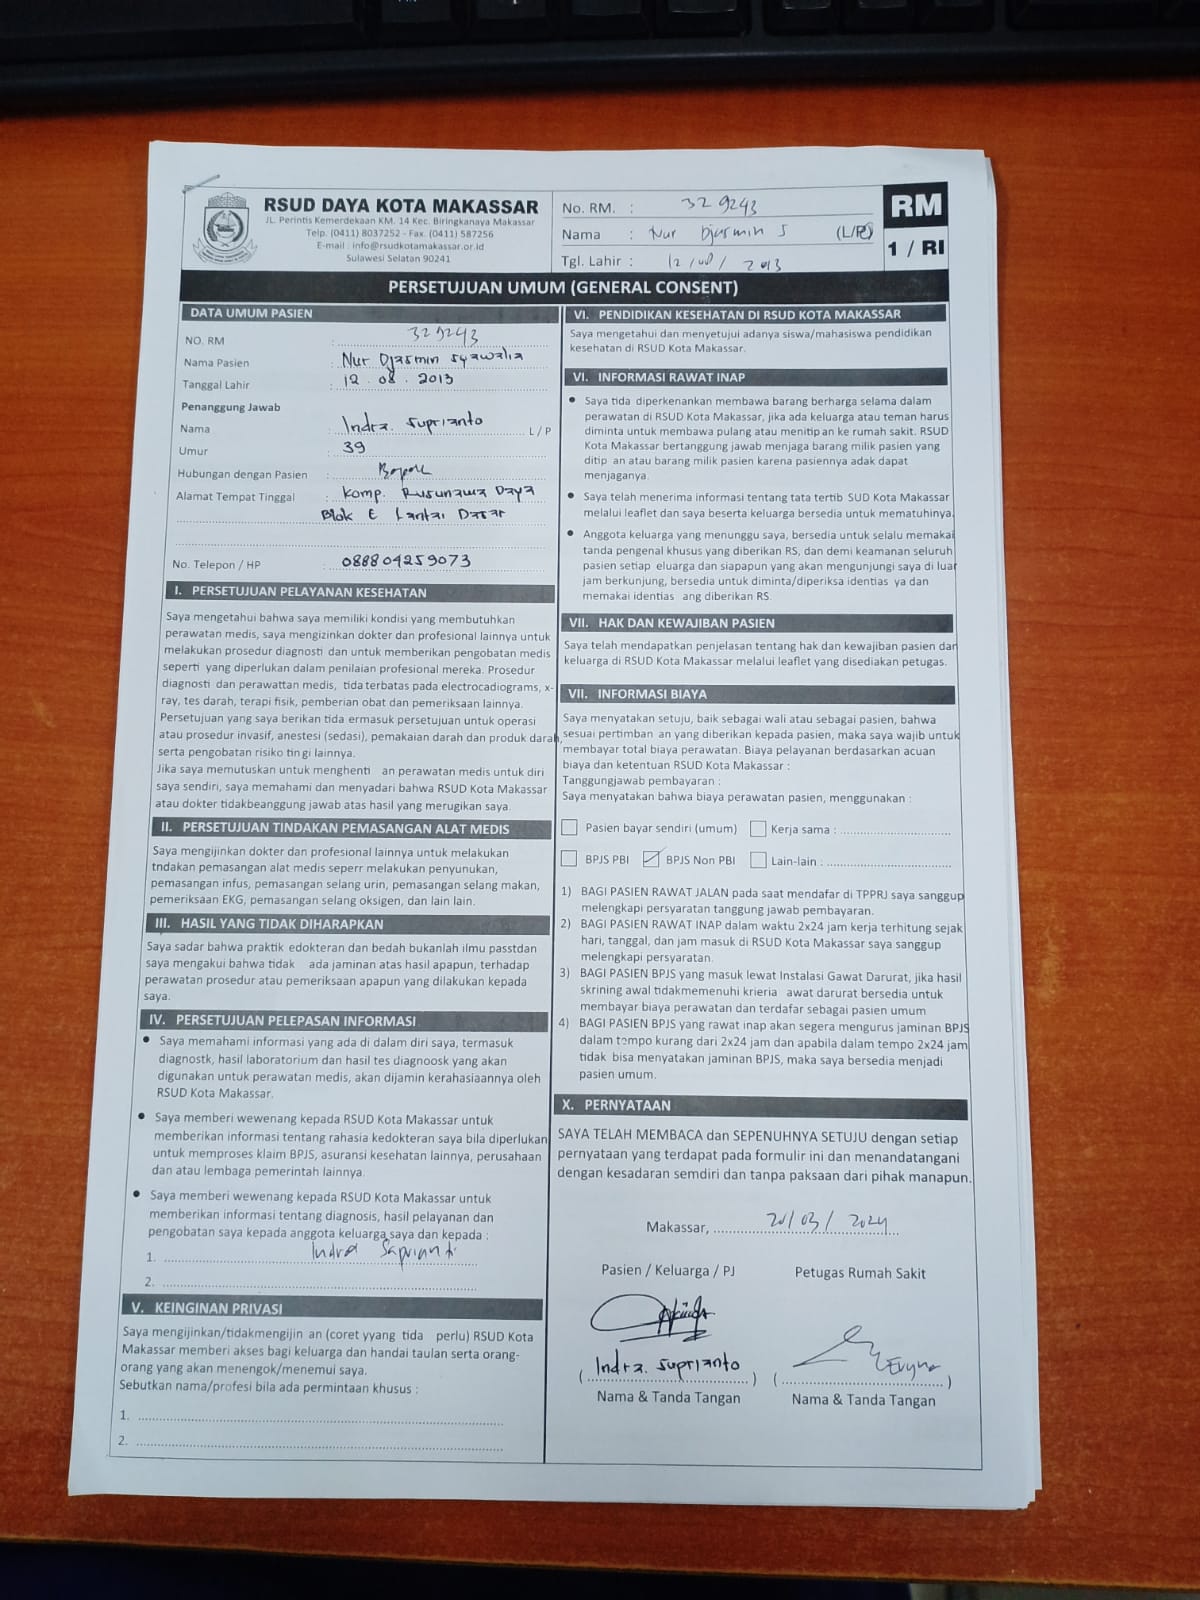 RSUD DAYA KOTA MAKASSAR
JL. Perintis Kemerdekaan KM. 14 Kec. Biringkanaya Makassar
Telp. (0411) 8037252 - Fax. (0411) 587256
E-mail : info@rsudkotamakassar.or.id
Sulawesi Selatan 90241
No. RM. : 329243
Nama : Nur Djasmin S (L/P)
Tgl. Lahir : 12/08/2013
RM
1 / RI
PERSETUJUAN UMUM (GENERAL CONSENT)
DATA UMUM PASIEN
NO. RM : 329243
Nama Pasien : Nur Djasmin syawalia
Tanggal Lahir : 12.08.2013
Penanggung Jawab
Nama : Indra. Suprianto L / P
Umur : 39
Hubungan dengan Pasien : Bapak
Alamat Tempat Tinggal : Komp. Rusunawa Daya
Blok E Lantai Dasar
No. Telepon / HP : 088804259073
I. PERSETUJUAN PELAYANAN KESEHATAN
Saya mengetahui bahwa saya memiliki kondisi yang membutuhkan
perawatan medis, saya mengizinkan dokter dan profesional lainnya untuk
melakukan prosedur diagnosti dan untuk memberikan pengobatan medis
seperti yang diperlukan dalam penilaian profesional mereka. Prosedur
diagnosti dan perawattan medis, tida terbatas pada electrocadiograms, x-
ray, tes darah, terapi fisik, pemberian obat dan pemeriksaan lainnya.
Persetujuan yang saya berikan tida ermasuk persetujuan untuk operasi
atau prosedur invasif, anestesi (sedasi), pemakaian darah dan produk darah,
serta pengobatan risiko tin gi lainnya.
Jika saya memutuskan untuk menghenti an perawatan medis untuk diri
saya sendiri, saya memahami dan menyadari bahwa RSUD Kota Makassar
atau dokter tidakbeanggung jawab atas hasil yang merugikan saya.
II. PERSETUJUAN TINDAKAN PEMASANGAN ALAT MEDIS
Saya mengijinkan dokter dan profesional lainnya untuk melakukan
tndakan pemasangan alat medis seperr melakukan penyunukan,
pemasangan infus, pemasangan selang urin, pemasangan selang makan,
pemeriksaan EKG, pemasangan selang oksigen, dan lain lain.
III. HASIL YANG TIDAK DIHARAPKAN
Saya sadar bahwa praktik edokteran dan bedah bukanlah ilmu passtdan
saya mengakui bahwa tidak ada jaminan atas hasil apapun, terhadap
perawatan prosedur atau pemeriksaan apapun yang dilakukan kepada
saya.
IV. PERSETUJUAN PELEPASAN INFORMASI
• Saya memahami informasi yang ada di dalam diri saya, termasuk
diagnostk, hasil laboratorium dan hasil tes diagnoosk yang akan
digunakan untuk perawatan medis, akan dijamin kerahasiaannya oleh
RSUD Kota Makassar.
• Saya memberi wewenang kepada RSUD Kota Makassar untuk
memberikan informasi tentang rahasia kedokteran saya bila diperlukan
untuk memproses klaim BPJS, asuransi kesehatan lainnya, perusahaan
dan atau lembaga pemerintah lainnya.
• Saya memberi wewenang kepada RSUD Kota Makassar untuk
memberikan informasi tentang diagnosis, hasil pelayanan dan
pengobatan saya kepada anggota keluarga saya dan kepada :
1. Indra Saprianti
2.
V. KEINGINAN PRIVASI
Saya mengijinkan/tidakmengijin an (coret yyang tida perlu) RSUD Kota
Makassar memberi akses bagi keluarga dan handai taulan serta orang-
orang yang akan menengok/menemui saya.
Sebutkan nama/profesi bila ada permintaan khusus :
1.
2.
VI. PENDIDIKAN KESEHATAN DI RSUD KOTA MAKASSAR
Saya mengetahui dan menyetujui adanya siswa/mahasiswa pendidikan
kesehatan di RSUD Kota Makassar.
VI. INFORMASI RAWAT INAP
• Saya tida diperkenankan membawa barang berharga selama dalam
perawatan di RSUD Kota Makassar, jika ada keluarga atau teman harus
diminta untuk membawa pulang atau menitip an ke rumah sakit. RSUD
Kota Makassar bertanggung jawab menjaga barang milik pasien yang
ditip an atau barang milik pasien karena pasiennya adak dapat
menjaganya.
• Saya telah menerima informasi tentang tata tertib SUD Kota Makassar
melalui leaflet dan saya beserta keluarga bersedia untuk mematuhinya.
• Anggota keluarga yang menunggu saya, bersedia untuk selalu memakai
tanda pengenal khusus yang diberikan RS, dan demi keamanan seluruh
pasien setiap eluarga dan siapapun yang akan mengunjungi saya di luar
jam berkunjung, bersedia untuk diminta/diperiksa identias ya dan
memakai identias ang diberikan RS.
VII. HAK DAN KEWAJIBAN PASIEN
Saya telah mendapatkan penjelasan tentang hak dan kewajiban pasien dan
keluarga di RSUD Kota Makassar melalui leaflet yang disediakan petugas.
VII. INFORMASI BIAYA
Saya menyatakan setuju, baik sebagai wali atau sebagai pasien, bahwa
sesuai pertimban an yang diberikan kepada pasien, maka saya wajib untuk
membayar total biaya perawatan. Biaya pelayanan berdasarkan acuan
biaya dan ketentuan RSUD Kota Makassar :
Tanggungjawab pembayaran :
Saya menyatakan bahwa biaya perawatan pasien, menggunakan :
Pasien bayar sendiri (umum) Kerja sama :
BPJS PBI BPJS Non PBI Lain-lain :
1) BAGI PASIEN RAWAT JALAN pada saat mendafar di TPPRJ saya sanggup
melengkapi persyaratan tanggung jawab pembayaran.
2) BAGI PASIEN RAWAT INAP dalam waktu 2x24 jam kerja terhitung sejak
hari, tanggal, dan jam masuk di RSUD Kota Makassar saya sanggup
melengkapi persyaratan.
3) BAGI PASIEN BPJS yang masuk lewat Instalasi Gawat Darurat, jika hasil
skrining awal tidakmemenuhi krieria awat darurat bersedia untuk
membayar biaya perawatan dan terdafar sebagai pasien umum
4) BAGI PASIEN BPJS yang rawat inap akan segera mengurus jaminan BPJS
dalam tempo kurang dari 2x24 jam dan apabila dalam tempo 2x24 jam
tidak bisa menyatakan jaminan BPJS, maka saya bersedia menjadi
pasien umum.
X. PERNYATAAN
SAYA TELAH MEMBACA dan SEPENUHNYA SETUJU dengan setiap
pernyataan yang terdapat pada formulir ini dan menandatangani
dengan kesadaran semdiri dan tanpa paksaan dari pihak manapun.
Makassar, 20/03/2024
Pasien / Keluarga / PJ Petugas Rumah Sakit
(Indra. Suprianto) ( )
Nama & Tanda Tangan Nama & Tanda Tangan